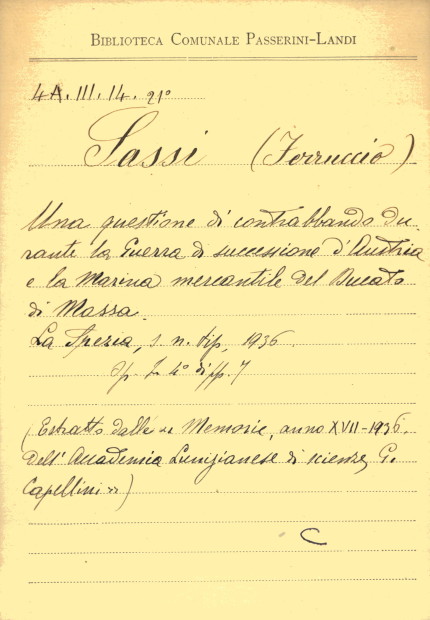 BIBLIOTECA COMUNALE PASSERINI-LANDI
4A.III.14.21º
Sassi (Ferruccio)
Una questione di contrabbando du
rante la Guerra di successione d'Austria
e la Marina mercantile del Ducato
di Massa.
La Spezia, s. n. tip, 1936
Op. In 4º di pp. 7
(Estratto dalle « Memorie, anno XVII-1936.
dell'Accademia Lunigianese di scienze G.
Capellini »)
C